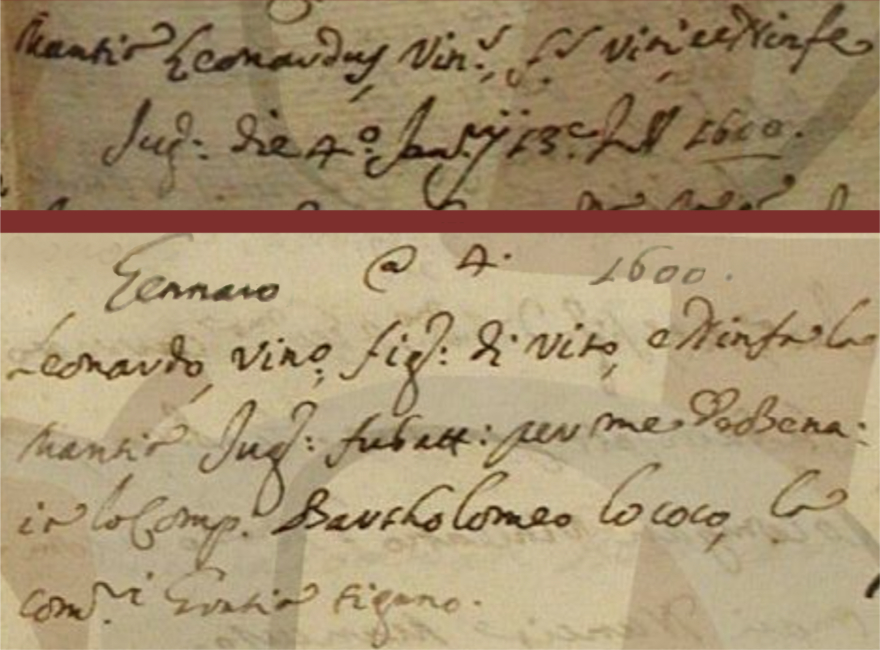 Mantia Leonardus Vin.s f.s viti et Ninfe
Jug: die 4.o Jan.rij 13.e Ind 1600.
Gennaro @ 4. 1600.
Leonardo, vin.o fig: di vito, e Ninfa la
Mantia Jug: fu batt: per me
lo Comp. Bartholomeo lo coco, la
com.ri Gratia figano.